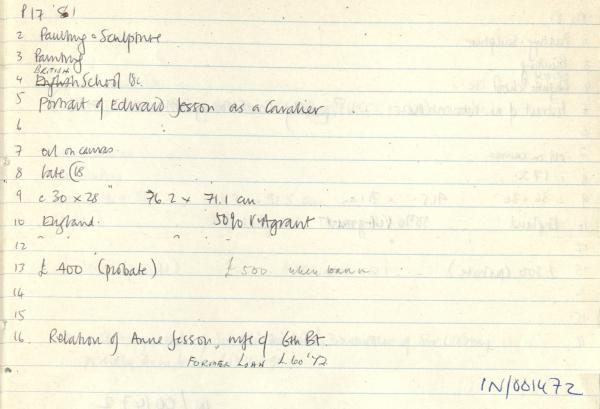 P17 '81
2 Painting & Sculpture
3 Painting
BRITISH
4 English School
5 Portrait of Edward Jesson as a Cavalier
6
7 oil on canvas
8 late C18
9 c 30 x 28" 76.2 x 71.1 cm
10 England. 50% V & A grant
12 " "
13 £ 400 (probate) £ 500 when loan
14
15
16. Relation of Anne Jesson, wife of 6th Bt
FORMER LOAN L60 '72
IN/001472